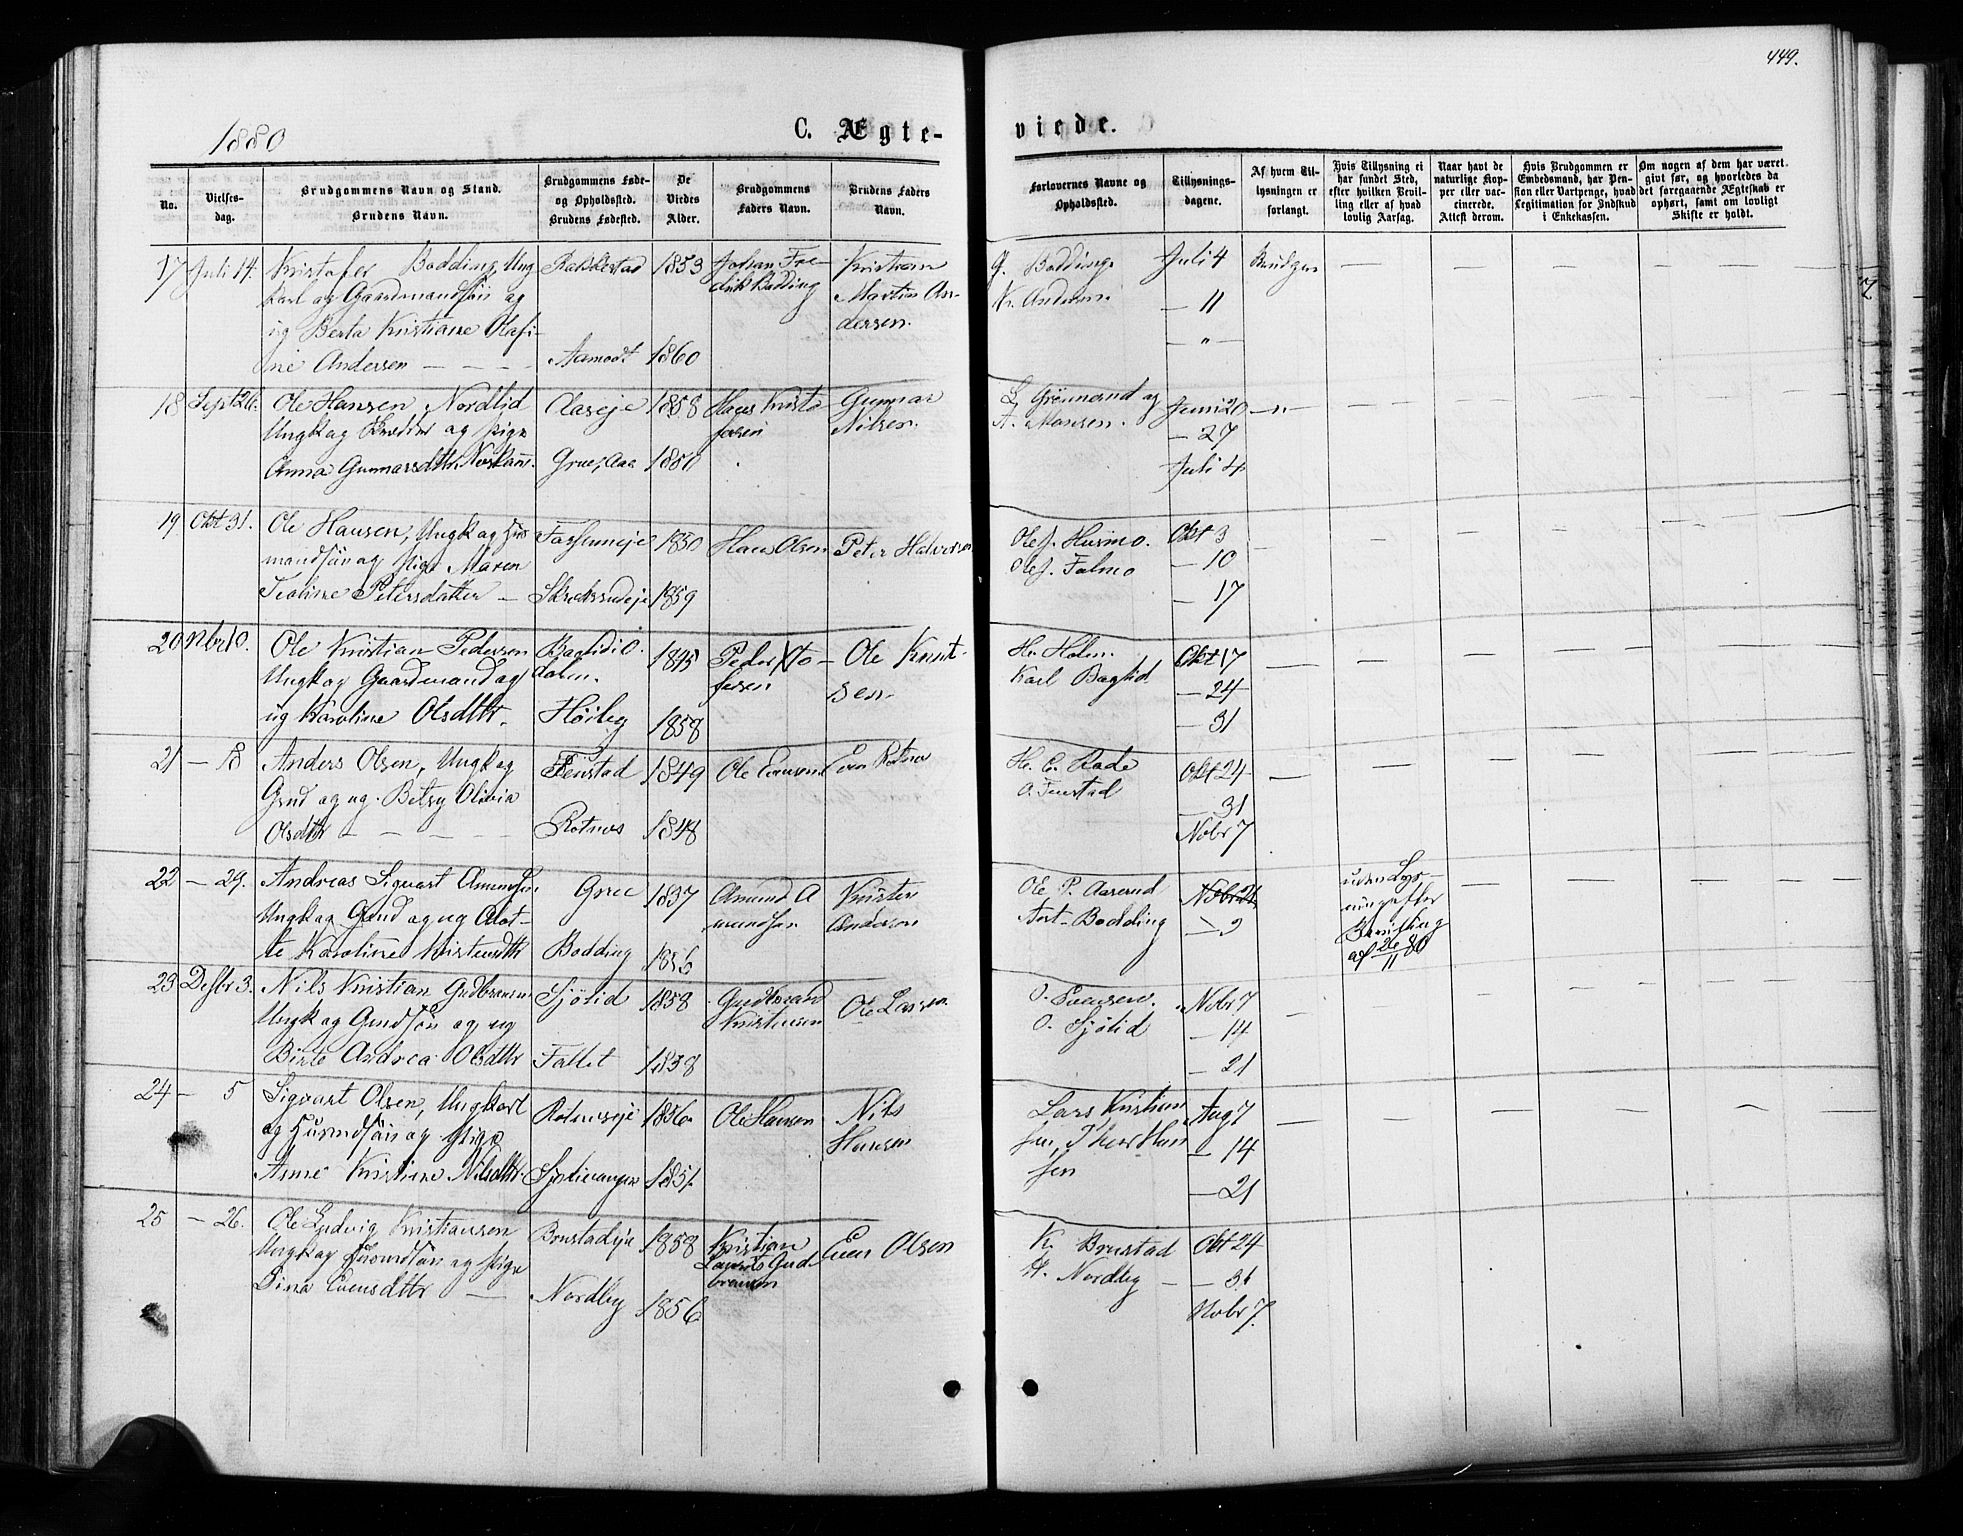 449.
1880
C. Ægte-
viede.
No.
Vielses-
dag.
Brudgommens Navn og Stand.
Brudens Navn.
Brudgommens Føde-
og Opholdssted.
Brudens Fødested.
De
Viedes
Alder.
Brudgommens
Faders Navn.
Brudens Faders
Navn.
Forlovernes Navne og
Opholdssted.
Tillysnings-
dagene.
Af hvem Til-
lysningen er
forlangt.
Hvis Tillysning ei
har fundet Sted,
efter hvilken Bevil-
ling eller af hvad
lovlig Aarsag.
Naar havt de
naturlige Kop-
per eller vac-
cinerede.
Attest derom.
Hvis Brudgommen er
Embedsmand, har Pen-
sion eller Vartpenge, hvad
Legitimation for Indskud
i Enkekassen.
Om nogen af dem har været
givt før, og hvorledes da
det foregaaende Ægteskab er
ophørt, samt om lovligt
Skifte er holdt.
17 Juli 14.
Kristofer Bodding, Ung
karl og Gaardmandsøn og
ug Berta Kristiane Olafi-
ne Andersen — — —
Rakkestad
Aamodt
1853
1860
Johan Fre-
drik Bodding
Kristian
Martin An-
dersen.
J. Bodding
K. Andersen
Juli 4
— 11
— " —
Brudgom
18 Sept 26.
Ole Hansen Nordlid
Ungk og og pige
Anna Gunnarsdtr
Aaseje
Grue, Aas
1858
Hans Kristo
fersen
Gunnar
Nilsen.
L. Grønnerud og
A. Monsen.
Juni 20
— 27
Juli 4
— " —
19 Okt 31.
Ole Hansen, Ungk og Hus
mandsøn og pige Maren
Teoline Petersdatter —
1850
1859
Hans Olsen
Peter Halvorsen
Ole J. Husmo.
Ole J. Falmo
Okt 3
— 10
— 17
20 Nbr 10.
Ole Kristian Pedersen
Ungk og Gaardmand og
ug Karoline Olsdtr.
Baglid i O-
dalen.
Høiby
1845
1858
Peder Xto-
fersen
Ole Knut-
sen.
H. Holm.
Karl Baglid
Okt 17
— 24
— 31
21 — 18
Anders Olsen, Ungk og
Gmd og ug. Betsy Olivia
Olsdtr — — —
Fenstad
Rotnes
1849
1848
Ole Evensen
Even Rotnes
H. C. Rade
O. Fenstad
Okt 24
— 31
Nobr 7
22 — 29.
Andreas Sigvart Amundsen
Ungk og Gmd og ug
te Karoline Kristensdtr
Grue
Bodding
1837
1856
Amund A
mundsen
Kristen
Andersen
Ole P. Aaserud
Bodding
uden Lys-
ning efter
Bevilling
af 26/11 80
23 Desbr 3.
Nils Kristian Gudbransen
Ungk og Gmdsøn og ug
Birte Andrea Olsdtr
Sjølid
Fallet
1858
1838
Gudbrand
Kristensen
Ole Larsen
O. Svensen.
O. Sjølid
Nobr 7
— 14
— 21
24 — 5
Sigvart Olsen, Ungkarl
og Husmdsøn og pige
Anne Kristine Nilsdtr
Rotneseje
1856
1851
Ole Hansen
Nils
Hansen
Lars Kristian
sen, Iver Han
sen
Aug 7
— 14
— 21
25 — 26.
Ole Ludvig Kristiansen
Ungk og Husmdsøn og pige
Dina Evensdtr —
Brustadeje
Nordby
1858
1856
Kristian
Laurits Gud-
bransen
Even Olsen
K. Brustad
H. Nordby —
Okt 24
— 31
Nobr 7.